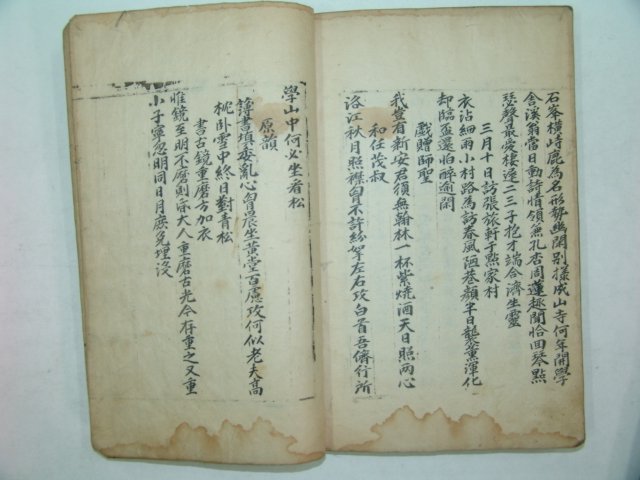 石峯橫峙鹿爲名形勢幽闊別樣成山寺何年開學
舍溪翁當日動詩情領兼孔杏周蓮趣聞恰回琴點
瑟聲最愛棲遲二三子抱才端合濟生靈
三月十日訪張旅軒于點家村
衣沾細雨小村路爲訪春風陋巷顏半日襲薰渾化
却臨盃還怕醉逾閑
戲贈師聖
我豈有新安君須無翰林一杯紫燒酒天日照兩心
和任茂叔
洛江秋月照襟胸不許紛挐左右攻白首吾儕行所
學山中何必坐看松
原韻
讀書塡委亂心胸晨坐黃堂百慮攻何似老夫高
枕卧雲中終日對靑松
書古鏡重磨方加衣
唯鏡至明不磨則亦大人重磨古光今存重之又重
小子寧忽明同日月庶免埋沒